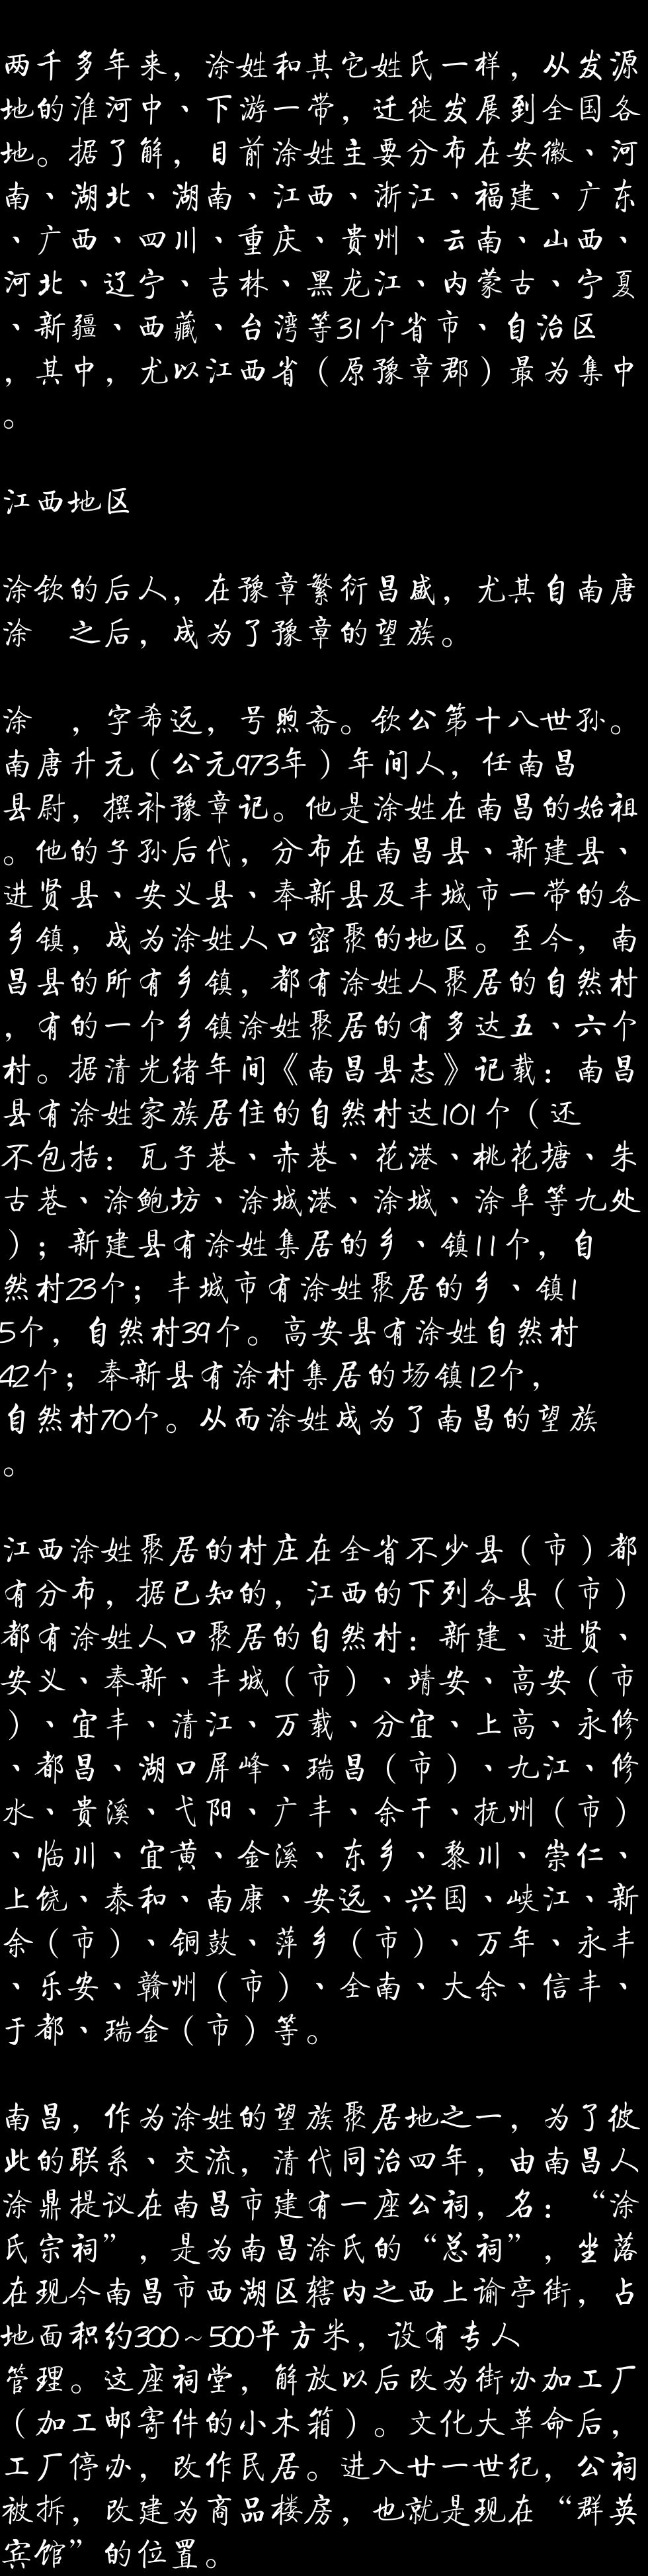 两千多年来，涂姓和其它姓氏一样，从发源
地的淮河中、下游一带，迁徙发展到全国各
地。据了解，目前涂姓主要分布在安徽、河
南、湖北、湖南、江西、浙江、福建、广东
、广西、四川、重庆、贵州、云南、山西、
河北、辽宁、吉林、黑龙江、内蒙古、宁夏
、新疆、西藏、台湾等31个省市、自治区
，其中，尤以江西省（原豫章郡）最为集中
。
江西地区
涂钦的后人，在豫章繁衍昌盛，尤其自南唐
涂　之后，成为了豫章的望族。
涂　，字希远，号煦斋。钦公第十八世孙。
南唐升元（公元973年）年间人，任南昌
县尉，撰补豫章记。他是涂姓在南昌的始祖
。他的子孙后代，分布在南昌县、新建县、
进贤县、安义县、奉新县及丰城市一带的各
乡镇，成为涂姓人口密聚的地区。至今，南
昌县的所有乡镇，都有涂姓人聚居的自然村
，有的一个乡镇涂姓聚居的有多达五、六个
村。据清光绪年间《南昌县志》记载：南昌
县有涂姓家族居住的自然村达101个（还
不包括：瓦子巷、赤巷、花港、桃花塘、朱
古巷、涂鲍坊、涂城港、涂城、涂阜等九处
）；新建县有涂姓集居的乡、镇11个，自
然村23个；丰城市有涂姓聚居的乡、镇1
5个，自然村39个。高安县有涂姓自然村
42个；奉新县有涂村集居的场镇12个，
自然村70个。从而涂姓成为了南昌的望族
。
江西涂姓聚居的村庄在全省不少县（市）都
有分布，据已知的，江西的下列各县（市）
都有涂姓人口聚居的自然村：新建、进贤、
安义、奉新、丰城（市）、靖安、高安（市
）、宜丰、清江、万载、分宜、上高、永修
、都昌、湖口屏峰、瑞昌（市）、九江、修
水、贵溪、弋阳、广丰、余干、抚州（市）
、临川、宜黄、金溪、东乡、黎川、崇仁、
上饶、泰和、南康、安远、兴国、峡江、新
余（市）、铜鼓、萍乡（市）、万年、永丰
、乐安、赣州（市）、全南、大余、信丰、
于都、瑞金（市）等。
南昌，作为涂姓的望族聚居地之一，为了彼
此的联系、交流，清代同治四年，由南昌人
涂鼎提议在南昌市建有一座公祠，名：“涂
氏宗祠”，是为南昌涂氏的“总祠”，坐落
在现今南昌市西湖区辖内之西上谕亭街，占
地面积约300～500平方米，设有专人
管理。这座祠堂，解放以后改为街办加工厂
（加工邮寄件的小木箱）。文化大革命后，
工厂停办，改作民居。进入廿一世纪，公祠
被拆，改建为商品楼房，也就是现在“群英
宾馆”的位置。